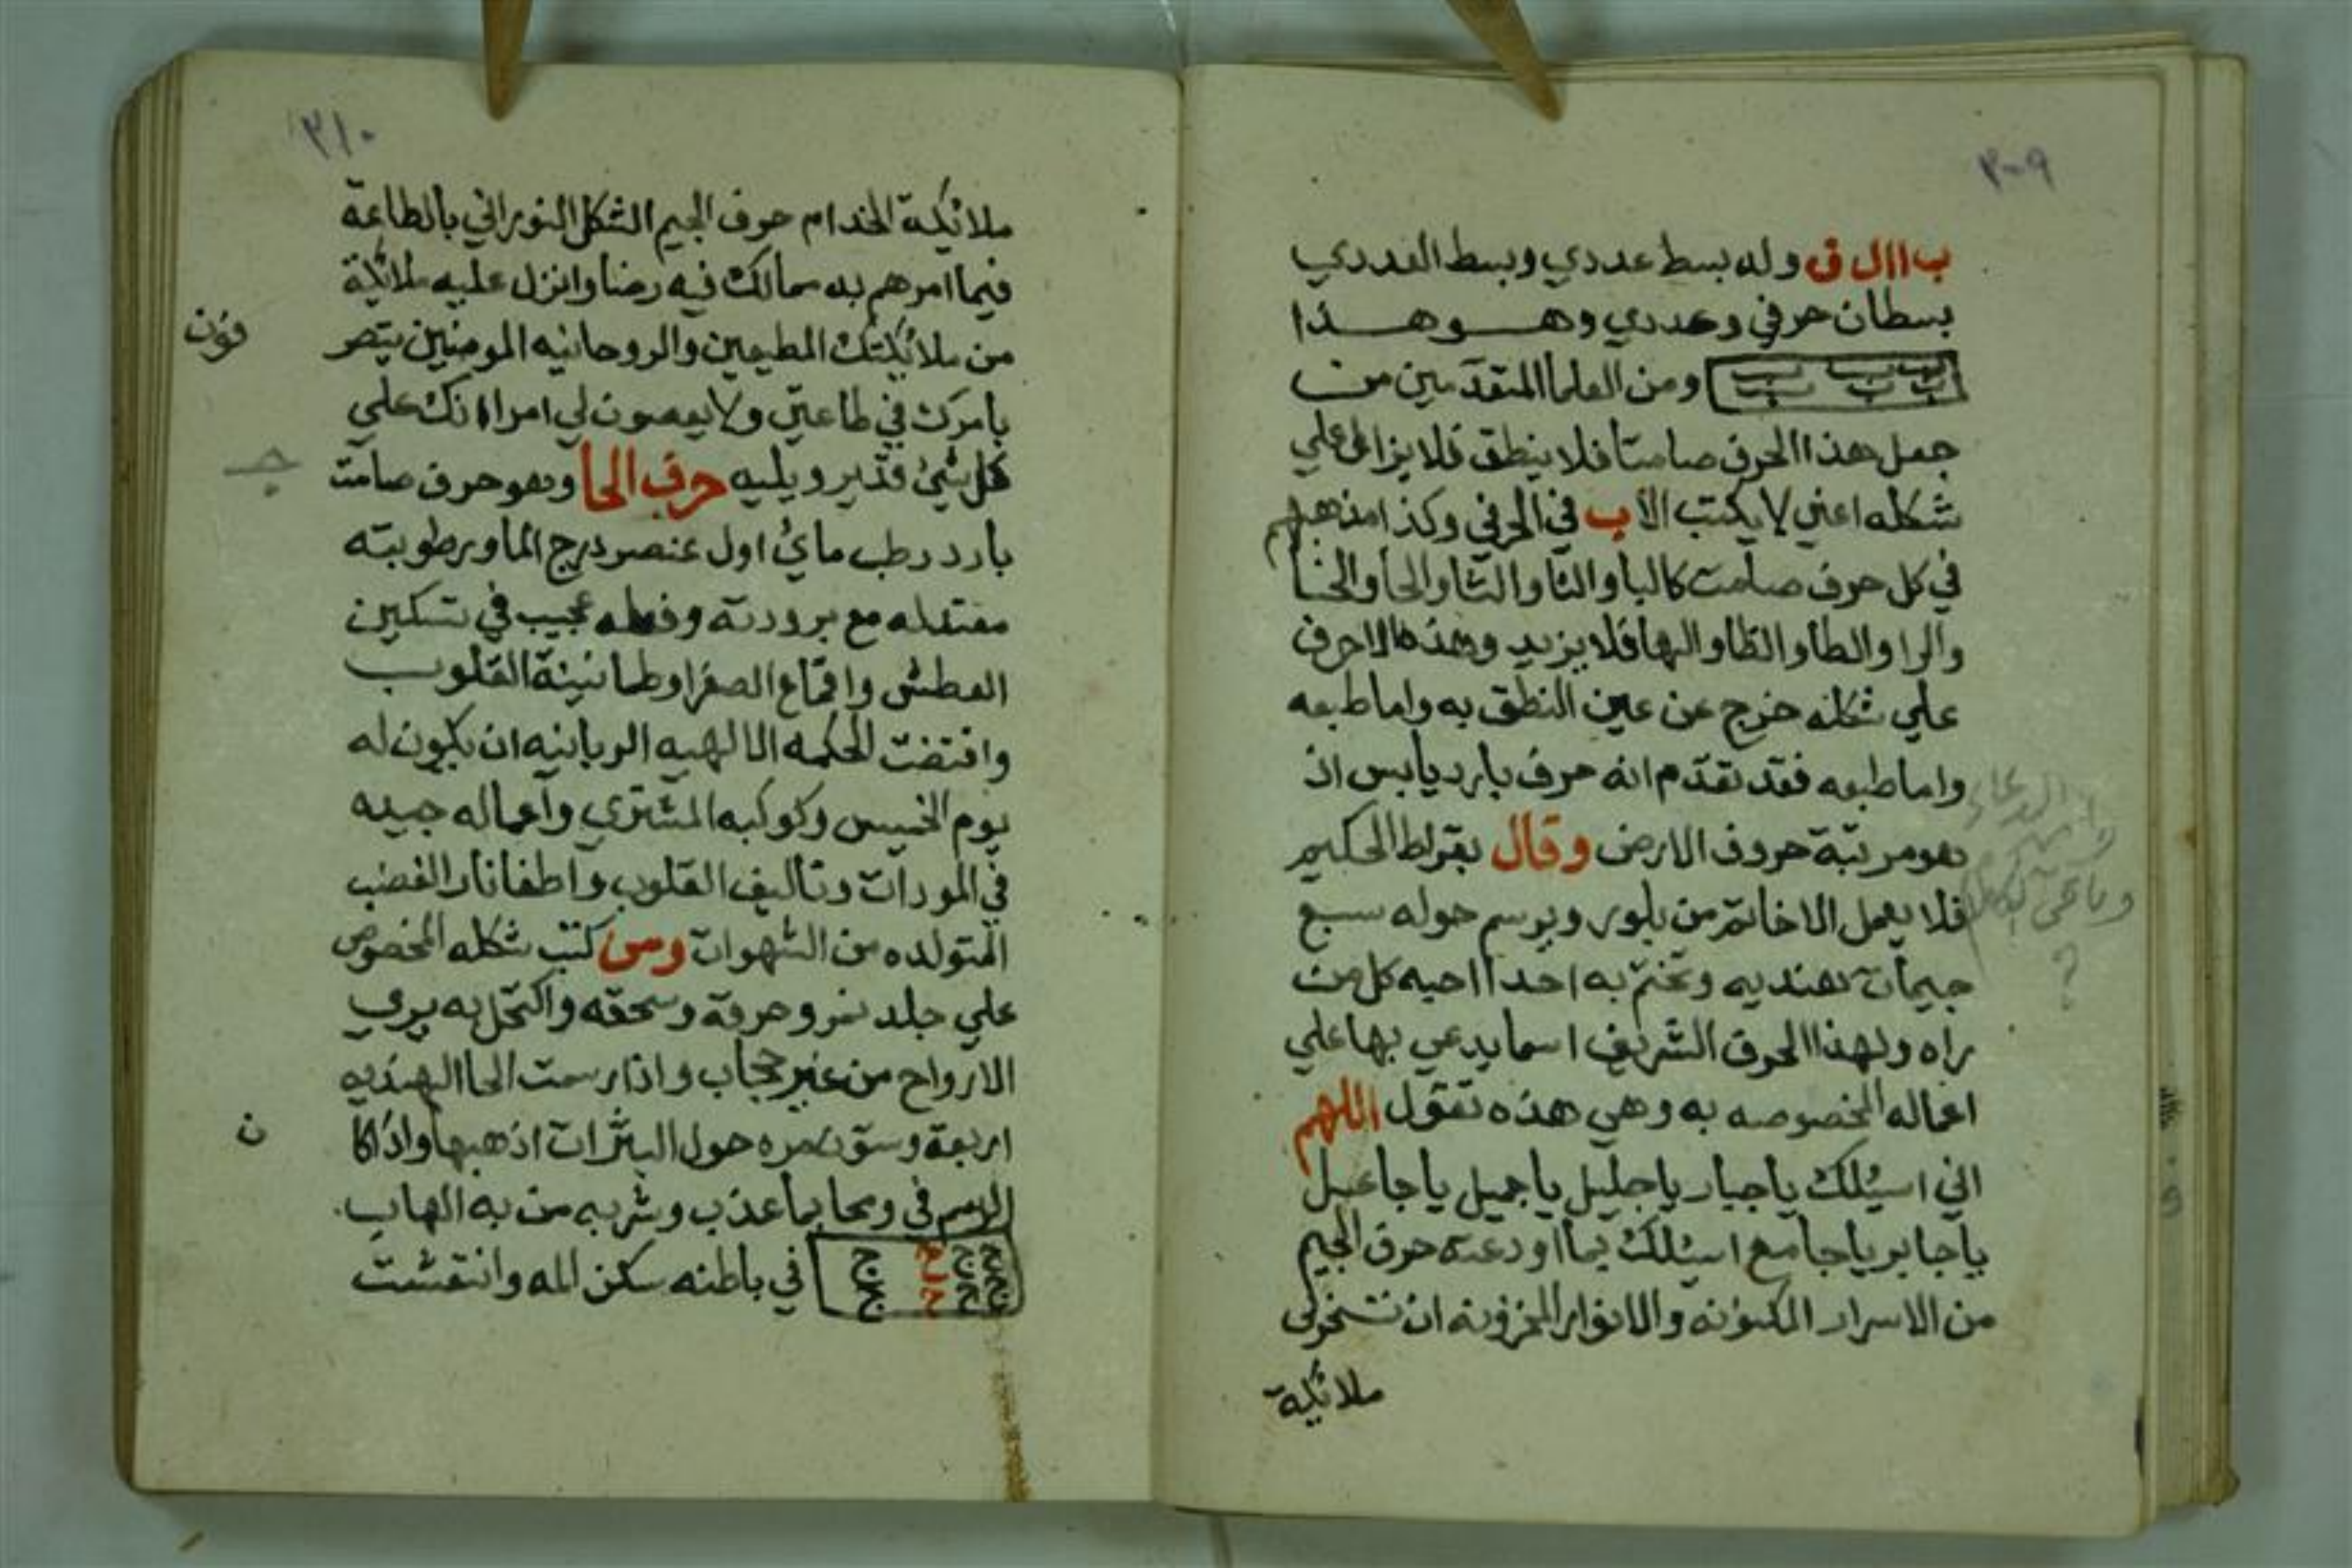 ٣٠٩
ب ا ال ق وله بسط عددي وبسط العددي
بسطان حرفي وعددي وهو هذا
ومن العلما المتقدمين من
جعل هذا الحرف صامتا فلا ينطق فلا يزاد علي
شكله اعني لا يكتب الا ب في الحرفي وكذا مذهبهم
في كل حرف صامت كالبا والتا والثا والحا والخا
والرا والطا والظا والها فلا يزيد وهذه الاحرف
علي شكله خرج عن عين النطق به واما طبعه
واما طبعه فقد تقدم انه حرف بارد يابس اذ
هو مرتبة حروف الارض وقال بقراط الحكيم
فلا يعمل الا خاتم من بلور ويرسم حوله سبع
جيمات هنديه وتختم به احدا احبه كل من
راه ولهذا الحرف الشريف اسما يدعي بها علي
اعماله المخصوصه به وهي هذه تقول اللهم
اني اسئلك ياجبار ياجليل ياجميل ياجاعيل
ياجابر ياجامع اسئلك بما اودعته حرف الجيم
من الاسرار المكنونه والانوار المخزونه ان تسخر لي
ملائكة
٣١٠
ملائكة الخدام حرف الجيم الشكل النوراني بالطاعة
فيما امرهم به مما لك فيه رضا وانزل عليه ملائكة
من ملائكتك المطيعين والروحانيه المومنين يتصر
فون
بامرك في طاعتي ولا يعصون لي امرا انك علي
كل شئ قدير ويليه حرف الحا وهو حرف صامت
بارد رطب مائ اول عنصر درج الما ورطوبته
معتدله مع برودته وفعله عجيب في تسكين
العطش واقماع الصفرا وطمانينة القلوب
واقتضت الحكمه الالهيه الربانيه ان يكون له
يوم الخميس وكوكبه المشتري واعماله جميله
في المودات وتاليف القلوب واطفا نار الغضب
المتولده من الشهوات ومن كتب شكله المخصوص
علي جلد نمر وحرقه وسحقه واكتحل به يري
الارواح من غير حجاب واذا رسمت الحا الهنديه
اربعة وستون مره حول البثرات اذهبها واذا كا
ن
الرسم في ومحا بما عذب وشربه من به الهاب
ح ح ح ح
ح ح ح ح
في باطنه سكن المه وانتقشت